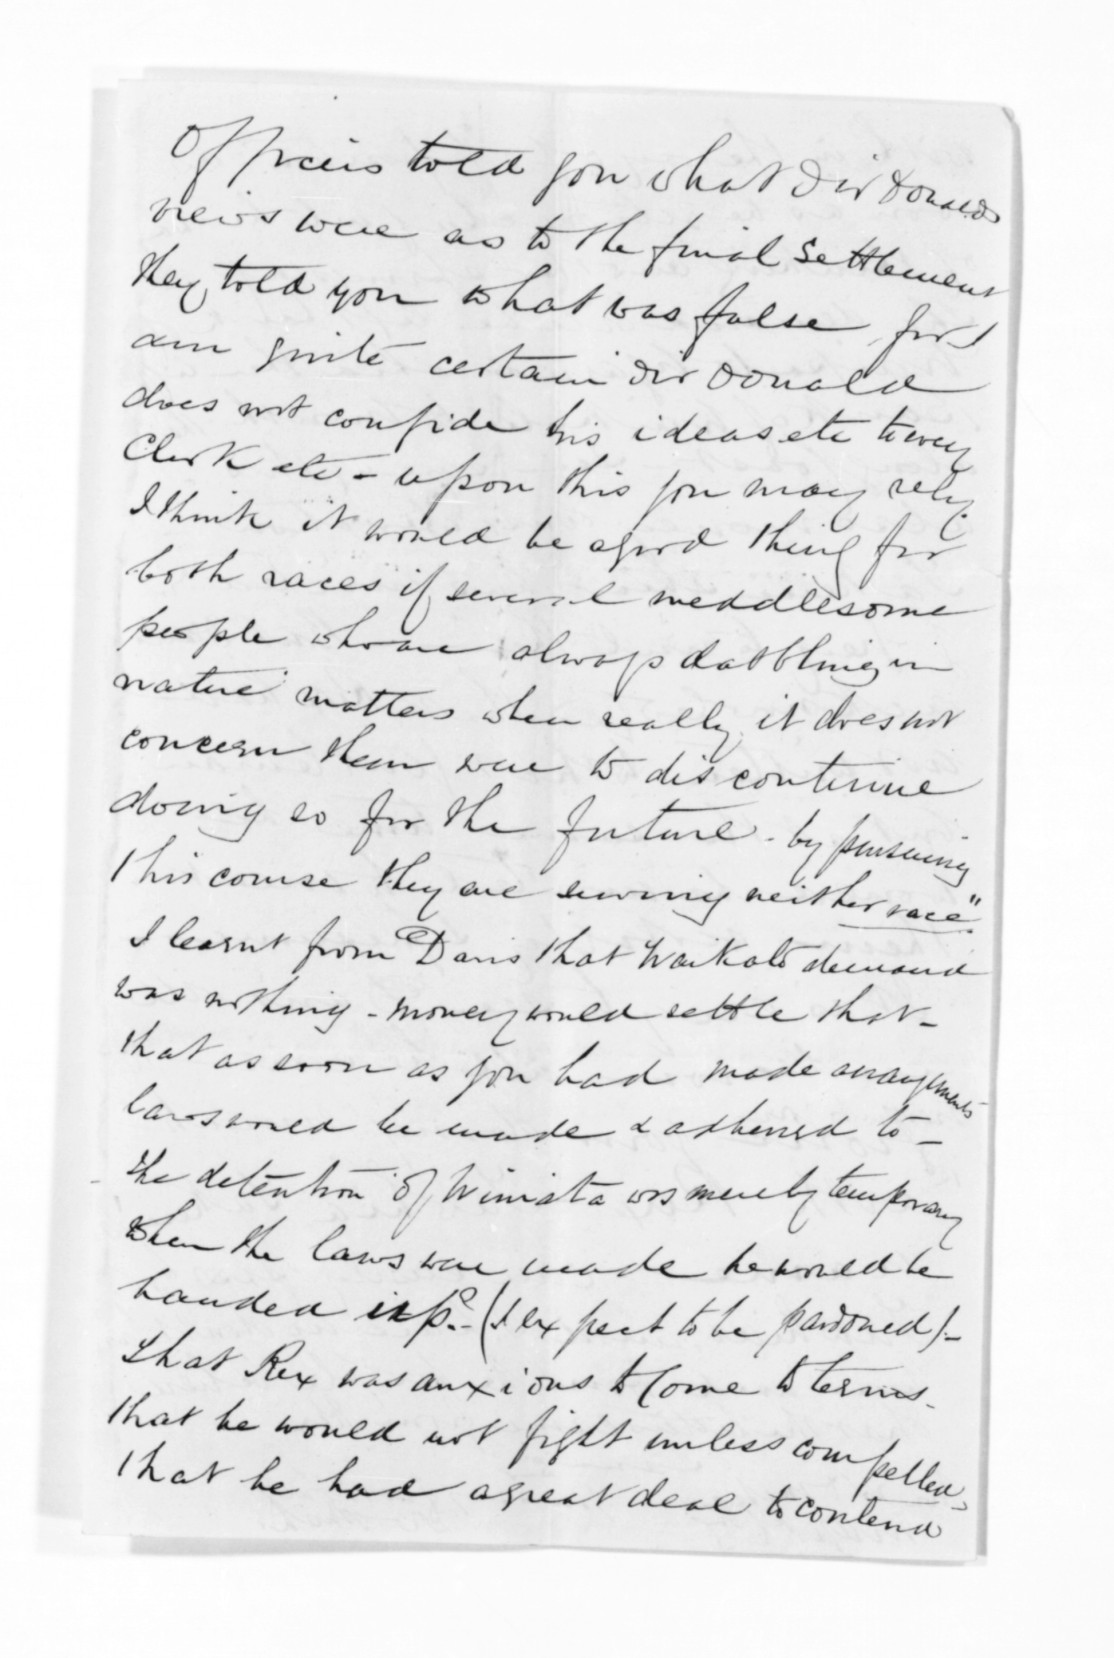 Officers told you what Sir Donalds
views were as to the final settlement
they told you what was false for I
am quite certain Sir Donald
does not confide his ideas etc to every
Clerk etc - upon this you may rely.
I think it would be a good thing for
both races if several meddlesome
people who are always dabbling in
native matters when really it does not
concern them were to discontinue
doing so for the future - by pursuing
this course they are serving neither race"
I learnt from Davis that Waikato demand
was nothing - money would settle that -
that as soon as you had made arrangements
laws would be made & adhered to -
the detention of Winiata was merely temporary
when the laws were made he would be
handed up? - (I expect to be pardoned) -
that Rex was anxious to come to terms -
that he would not fight unless compelled,
that he had a great deal to contend